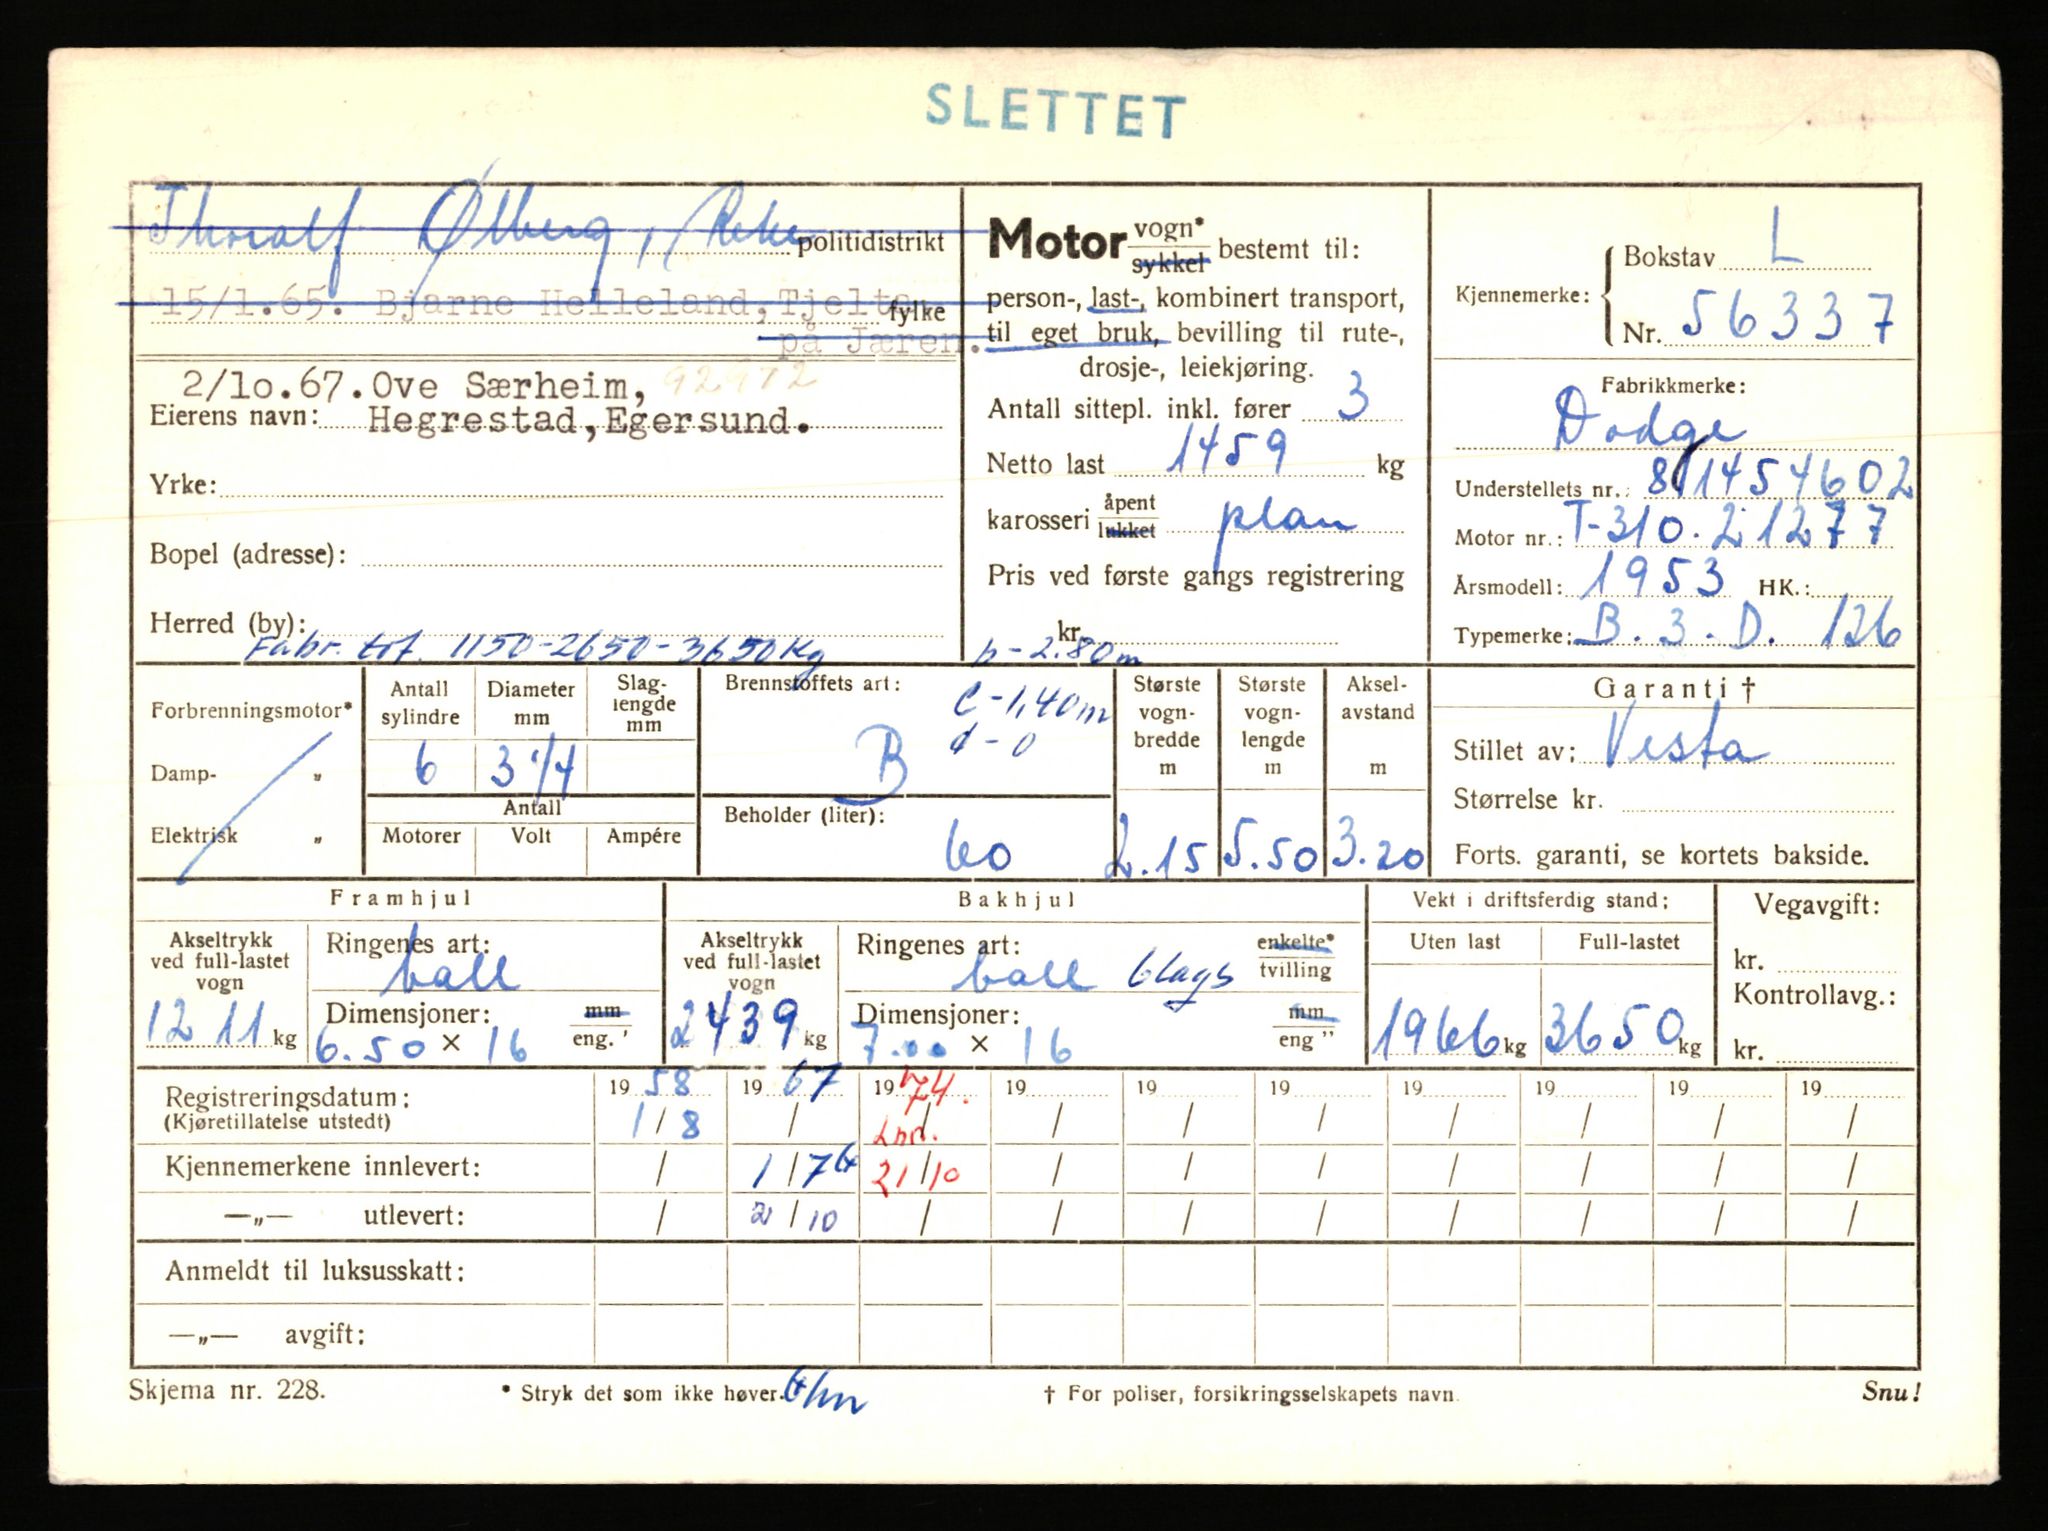 SLETTET
Thoralf Ølberg, Reke politidistrikt
15/1.65. Bjarne Helleland, Tjelta fylke
på Jæren.
2/1o.67. Ove Særheim, 92972
Eierens navn: Hegrestad, Egersund.
Yrke:
Bopel (adresse):
Herred (by):
Fabr. tot. 1150-2650-3650 kg
Motor vogn* sykkel bestemt til:
person-, last-, kombinert transport,
til eget bruk, bevilling til rute-,
drosje-, leiekjøring.
Antall sittepl. inkl. fører 3
Netto last 1459 kg
karosseri åpent lukket plan
Pris ved første gangs registrering
kr.
b - 2.80 m
Kjennemerke: Bokstav L
Nr. 56337
Fabrikkmerke:
Dodge
Understellets nr.: 81454602
Motor nr.: T-310.21277
Årsmodell: 1953 HK.:
Typemerke: B.3.D. 126
Forbrenningsmotor*
Damp- „
Elektrisk „
Antall sylindre 6
Diameter mm 3 1/4
Slag-lengde mm
Antall
Motorer Volt Ampére
Brennstoffets art: B
c - 1,40 m
d - 0
Beholder (liter): 60
Største vogn-bredde m 2.15
Største vogn-lengde m 5.50
Aksel-avstand m 3.20
Garanti †
Stillet av: Vesta
Størrelse kr.
Forts. garanti, se kortets bakside.
Framhjul
Akseltrykk ved full-lastet vogn 1211 kg
Ringenes art: ball
Dimensjoner: mm eng. '
6.50 × 16
Bakhjul
Akseltrykk ved full-lastet vogn 2439 kg
Ringenes art: ball 6lags enkelte* tvilling
Dimensjoner: mm eng "
7.00 × 16
Vekt i driftsferdig stand:
Uten last Full-lastet
1966 kg 3650 kg
Vegavgift:
kr.
Kontrollavg.:
kr.
Registreringsdatum: 19 58 19 67 19 74. 19 19 19 19 19 19 19
(Kjøretillatelse utstedt) 1/8 / / / / / / / / /
Kjennemerkene innlevert: / 1/7 21/10 / / / / / / /
—„— utlevert: / 2/10 / / / / / / / /
Anmeldt til luksusskatt:
—„— avgift:
Skjema nr. 228.
* Stryk det som ikke høver.
† For poliser, forsikringsselskapets navn.
Snu!